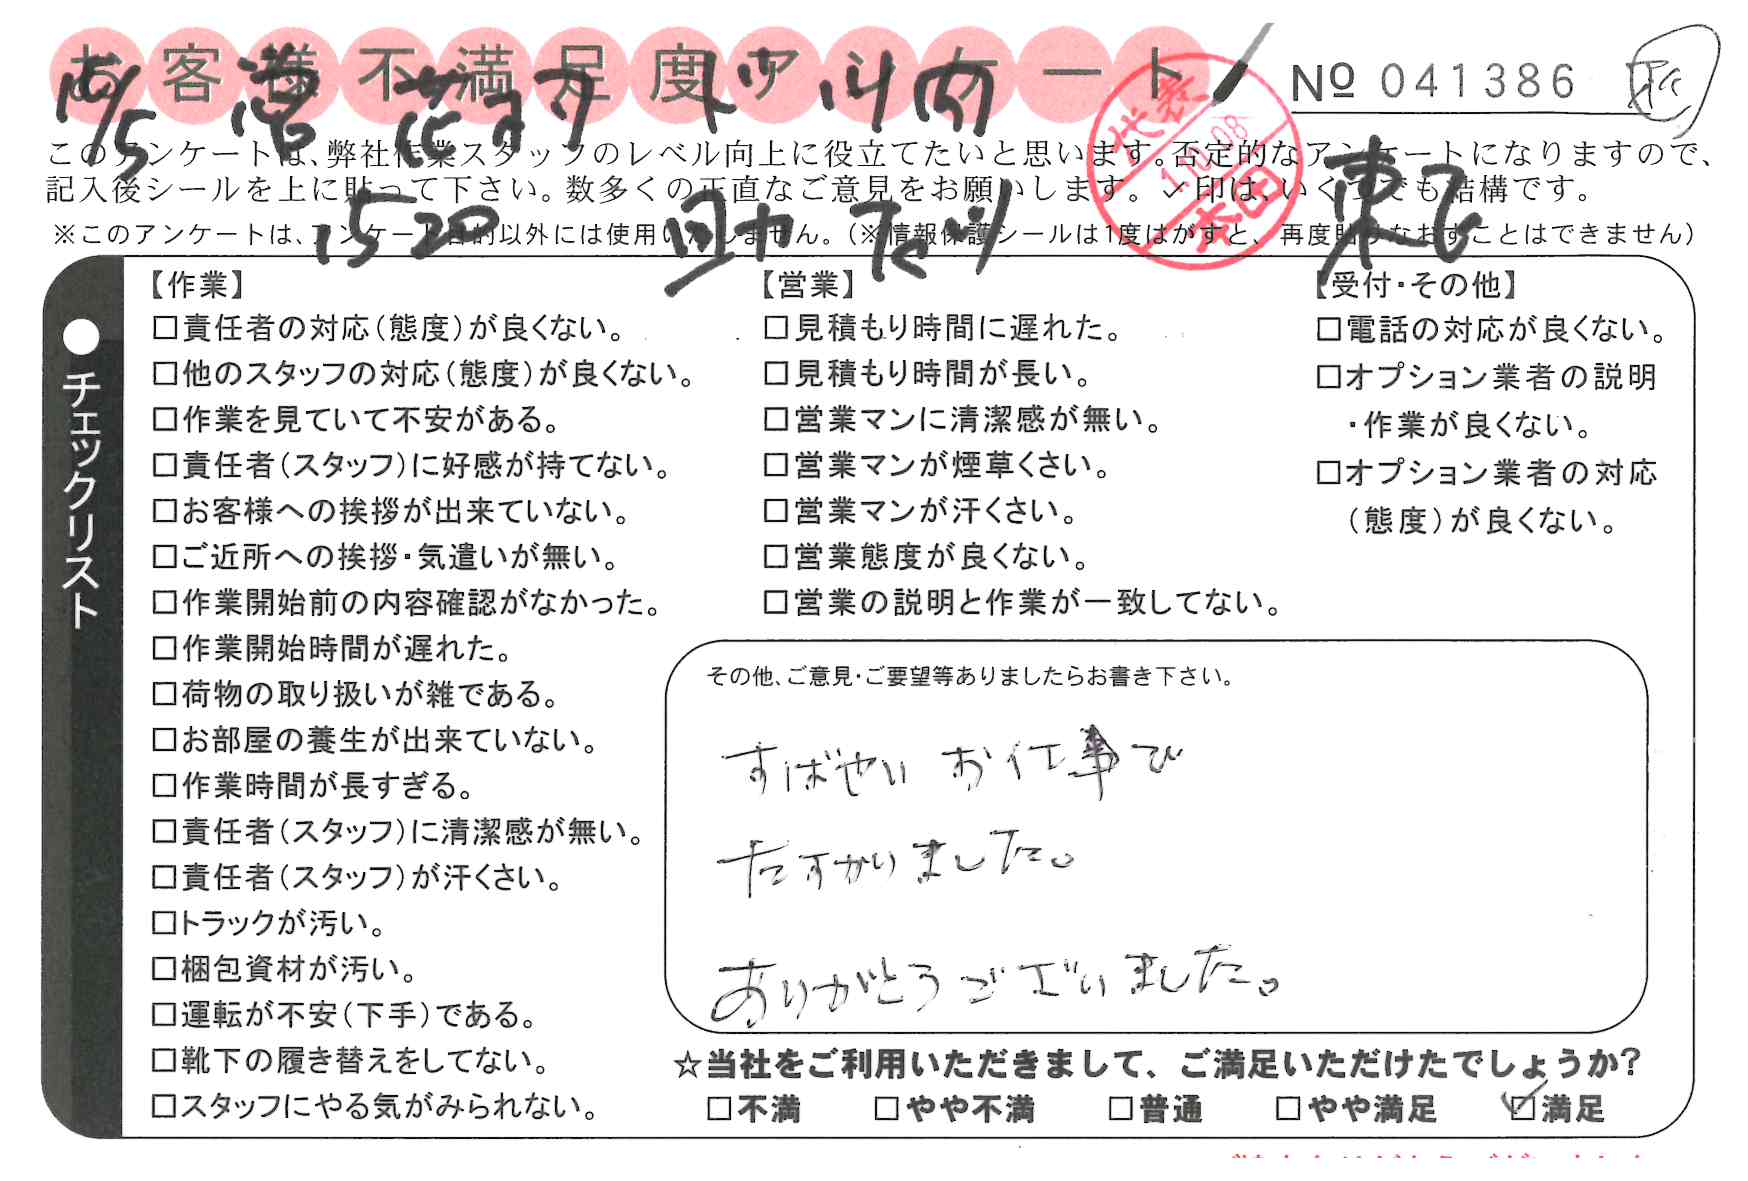 お客様不満足度アンケート
No 041386
このアンケートは、弊社作業スタッフのレベル向上に役立てたいと思います。否定的なアンケートになりますので、
記入後シールを上に貼って下さい。数多くの正直なご意見をお願いします。✓印は、いくつでも結構です。
※このアンケートは、アンケート目的以外には使用いたしません。（※情報保護シールは1度はがすと、再度貼りなおすことはできません）
代表
1.10.08
本田
1520
チェックリスト
【作業】
□責任者の対応（態度）が良くない。
□他のスタッフの対応（態度）が良くない。
□作業を見ていて不安がある。
□責任者（スタッフ）に好感が持てない。
□お客様への挨拶が出来ていない。
□ご近所への挨拶・気遣いが無い。
□作業開始前の内容確認がなかった。
□作業開始時間が遅れた。
□荷物の取り扱いが雑である。
□お部屋の養生が出来ていない。
□作業時間が長すぎる。
□責任者（スタッフ）に清潔感が無い。
□責任者（スタッフ）が汗くさい。
□トラックが汚い。
□梱包資材が汚い。
□運転が不安（下手）である。
□靴下の履き替えをしてない。
□スタッフにやる気がみられない。
【営業】
□見積もり時間に遅れた。
□見積もり時間が長い。
□営業マンに清潔感が無い。
□営業マンが煙草くさい。
□営業マンが汗くさい。
□営業態度が良くない。
□営業の説明と作業が一致してない。
【受付・その他】
□電話の対応が良くない。
□オプション業者の説明
・作業が良くない。
□オプション業者の対応
（態度）が良くない。
その他、ご意見・ご要望等ありましたらお書き下さい。
すばやい お仕事で
たすかりました。
ありがとうございました。
☆当社をご利用いただきまして、ご満足いただけたでしょうか?
□不満 □やや不満 □普通 □やや満足 ☑満足